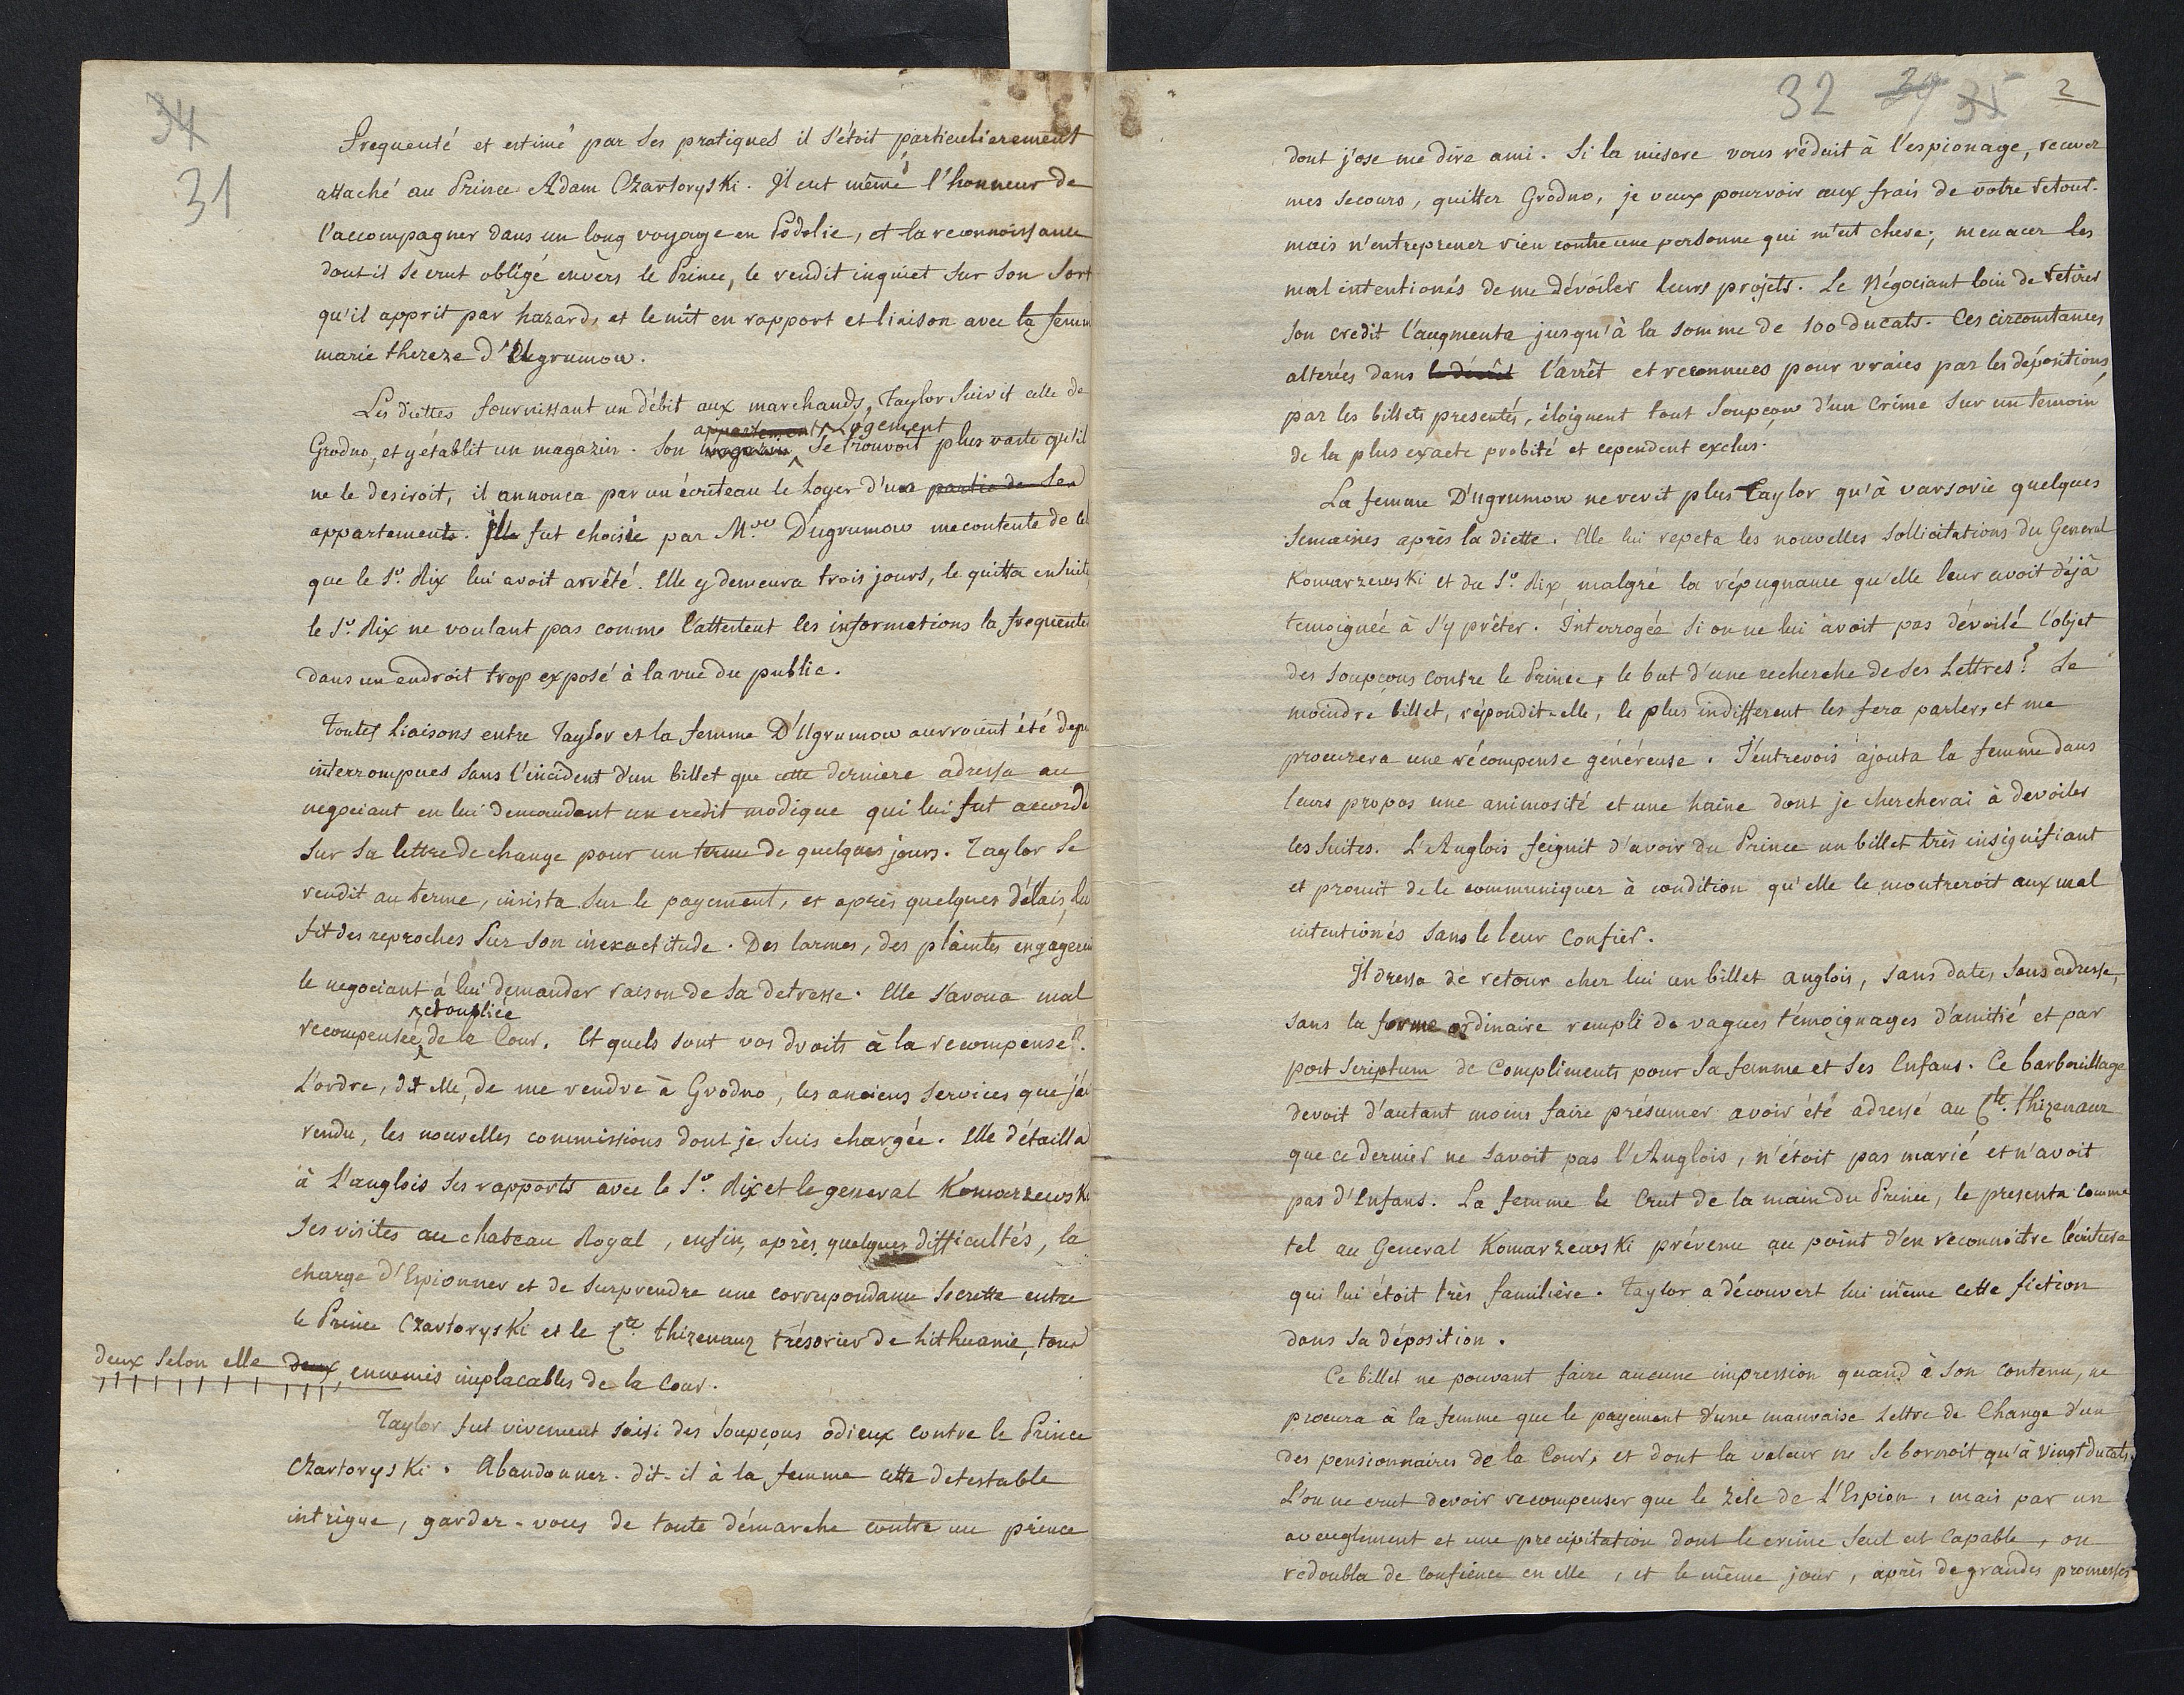 34
31
Frequenté et estimé par ses pratiques il s'étoit particulierement
attaché au Prince Adam Czartoryski. Il eut même l'honneur de
l'accompagner dans un long voyage en Podolie, et la reconnoissance
dont il se crut obligé envers le Prince, le rendit inquiet sur son sort
qu'il apprit par hazard, et le mit en rapport et liaison avec la femm
marie thereze d'Ugrumow.
Les diettes fournissant un débit aux marchands, Taylor suivit celle de
appartement Logement
Grodno, et y établit un magazin. Son magazin se trouvoit plus vaste qu'il
ne le desiroit, il annonca par un écriteau le Loyer d'un partie de ses
appartements. Il fut choisie par Me Dugrumow mecontente de cel
que le Sr. Rix lui avoit arrêté. Elle y demeura trois jours, le quitta ensuite
le Sr. Rix ne voulant pas comme l'attestent les informations la frequenter
dans un endroit trop exposé à la vue du public.
Toutes Liaisons entre Taylor et la femme D'Ugrumow aurroient été depu
interrompues sans l'incident d'un billet que cette derniere adressa au
negociant en lui demandant un credit modique qui lui fut accordé
sur sa lettre de change pour un terme de quelques jours. Taylor se
rendit au terme, insista sur le payement, et après quelques délais, lui
fit des reproches sur son inexactitude. Des larmes, des plaintes engageren
le negociant à lui demander raison de sa detresse. Elle s'avoua mal
et oubliée
recompensée de la Cour. Et quels sont vos droits à la recompense?
L'ordre, dit elle, de me rendre à Grodno, les anciens services que j'ai
rendu, les nouvelles commissions dont je suis chargée. Elle détailla
à L'anglois ses rapports avec le Sr. Rix et le general Komarzewski
ses visites au chateau Royal, enfin, après quelques difficultés, la
charge d'Espionner et de surprendre une correspondance secrette entre
le Prince Czartoryski et le Cte. thizenauz trésorier de Lithuanie, tous
deux selon elle deux, ennemis implacables de la Cour.
Taylor fut vivement saisi des soupçons odieux contre le Prince
Czartoryski. Abandonnez-dit-il à la femme cette detestable
intrigue, gardez-vous de toute démarche contre un prince
32 34 35 2
dont j'ose me dire ami. Si la misere vous réduit à l'espionage, recevez
mes secours, quittez Grodno, je veux pourvoir aux frais de votre retour.
mais n'entreprenez rien contre une personne qui m'est chere; menacez les
mal intentionés de me dévoiler leurs projets. Le Négociant loin de retirer
son credit l'augmenta jusqu'à la somme de 100 Ducats. Ces circonstances
alterées dans le décrêt l'arrêt et reconnues pour vraies par les dépositions,
par les billets presentés, éloignent tout soupçon d'un Crime sur un temoin
de la plus exacte probité et cependent exclus.
La femme D'ugrumow ne revit plus Taylor qu'à varsovie quelques
semaines après la diette. Elle lui repeta les nouvelles sollicitations du General
Komarzewski et du Sr. Rix, malgré la répugnance qu'elle leur avoit déjà
temoignée à s'y prêter. Interrogée si on ne lui avoit pas dévoilé l'objet
des soupçons contre le Prince, le but d'une recherche de ses Lettres? Le
moindre billet, répondit-elle, le plus indifferent les fera parler, et me
procurera une récompense généreuse. J'entrevois ajouta la femme dans
leurs propos une animosité et une haine dont je chercherai à devoiler
les suites. L'Anglois feignit d'avoir du Prince un billet très insignifiant
et promit de le communiquer à condition qu'elle le montreroit aux mal
intentionés sans le leur confier.
Il dressa de retour chez lui un billet anglois, sans date, sans adresse,
sans la forme ordinaire rempli de vagues témoignages d'amitié et par
post scriptum de Compliments pour sa femme et ses Enfans. Ce barbouillage
devoit d'autant moins faire présumer avoir été adressé au Cte. thizenauz
que ce dernier ne savoit pas l'Anglois, n'étoit pas marié et n'avoit
pas d'Enfans. La femme le Crut de la main du Prince, le presenta comme
tel au General Komarzewski prévenu au point d'en reconnoitre l'écriture
qui lui étoit très familière. Taylor a découvert lui même cette fiction
dans sa déposition.
Ce billet ne pouvant faire aucune impression quand à son contenu, ne
procura à la femme que le payement d'une mauvaise Lettre de Change d'un
des pensionnaires de la Cour, et dont la valeur ne se bornoit qu'à vingt Ducats.
L'on ne crut devoir recompenser que le zele de L'Espion, mais par un
aveuglement et une precipitation dont le crime seul est capable, on
redoubla de confience en elle, et le même jour, après de grandes promesses